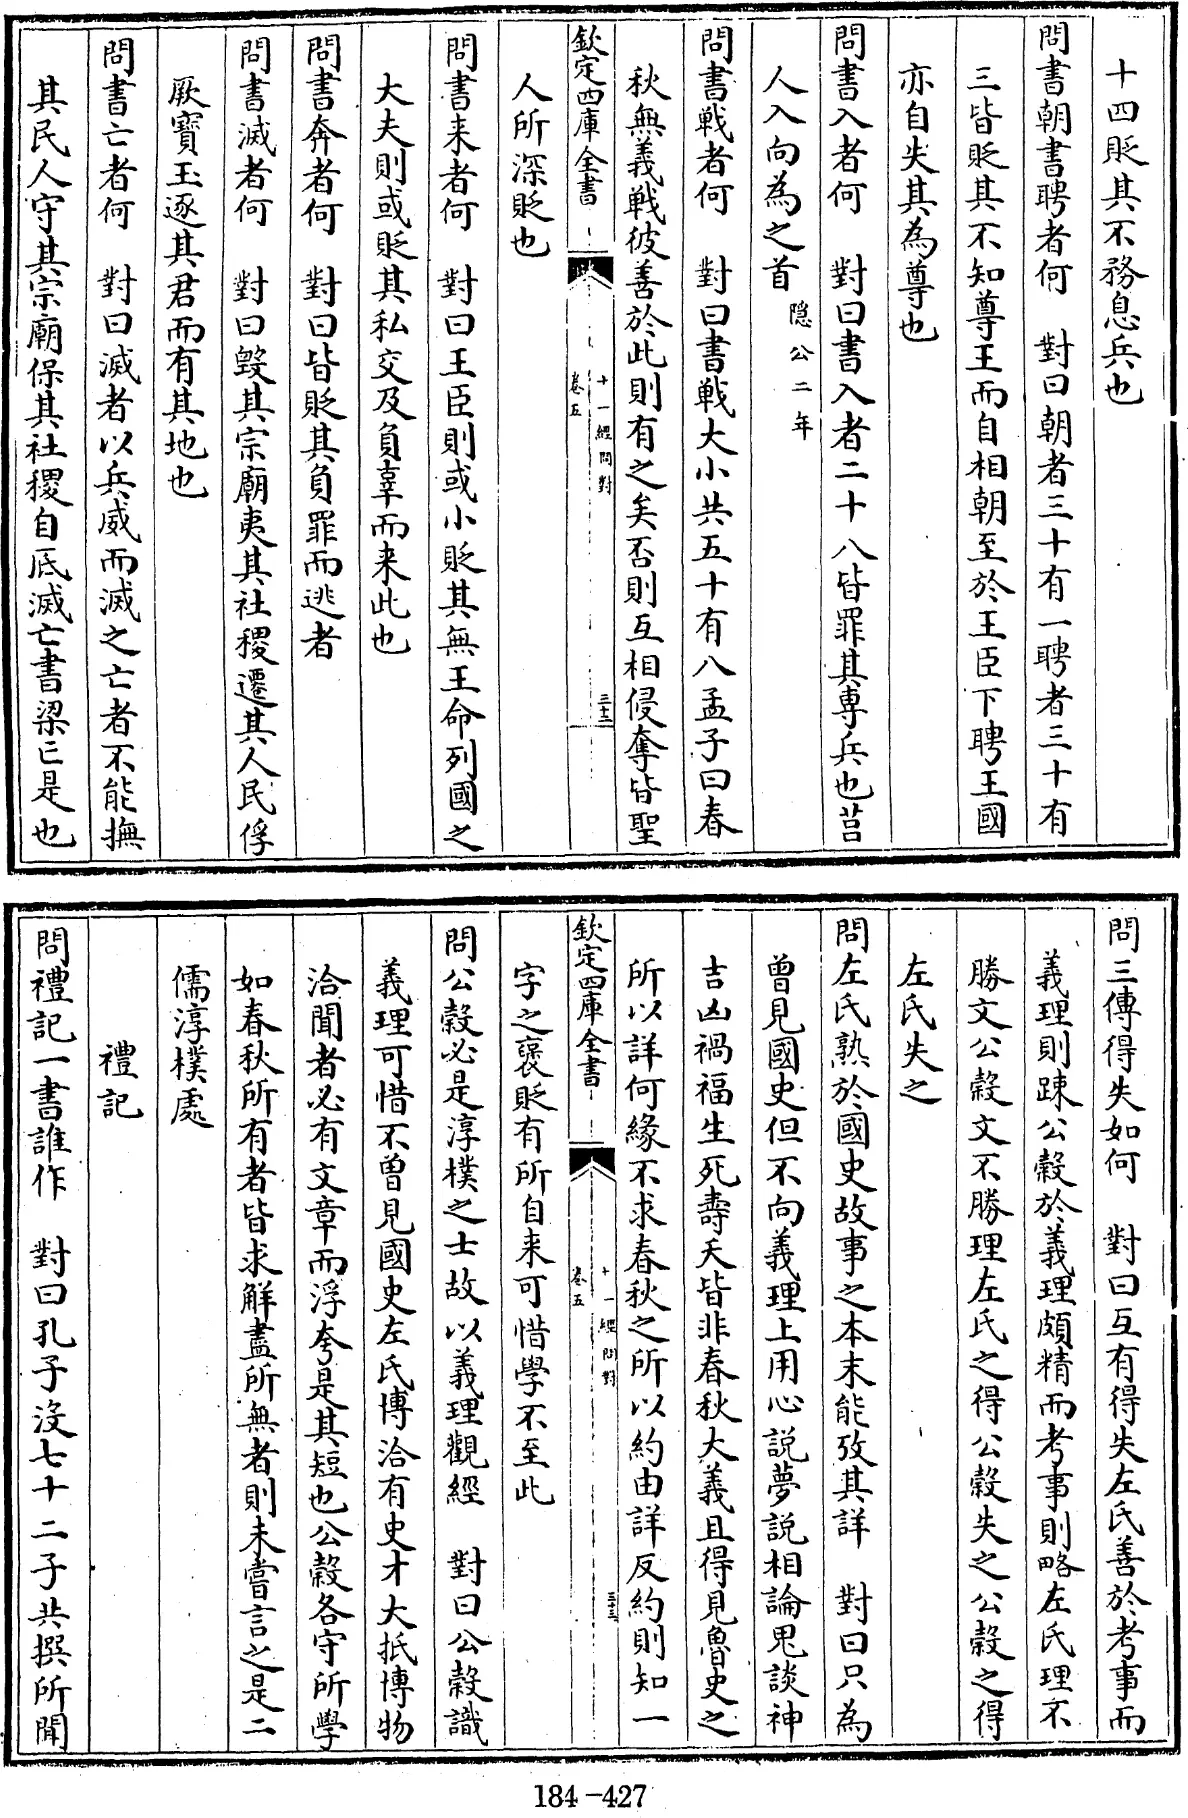 十四貶其不務息兵也
問書朝書聘者何　對曰朝者三十有一聘者三十有
三皆貶其不知尊王而自相朝至於王臣下聘王國
亦自失其為尊也
問書入者何　對曰書入者二十八皆罪其專兵也莒
人入向為之首隠公二年
問書戰者何　對曰書戰大小共五十有八孟子曰春
秋無義戰彼善於此則有之矣否則互相侵奪皆聖
欽定四庫全書
十一經問對
卷五
三十二
人所深貶也
問書来者何　對曰王臣則或小貶其無王命列國之
大夫則或貶其私交及負辜而来此也
問書奔者何　對曰皆貶其負罪而逃者
問書滅者何　對曰毀其宗廟夷其社稷遷其人民俘
厥寶玉逐其君而有其地也
問書亡者何　對曰滅者以兵威而滅之亡者不能撫
其民人守其宗廟保其社稷自底滅亡書梁亡是也
問三傳得失如何　對曰互有得失左氏善於考事而
義理則踈公穀於義理頗精而考事則略左氏理不
勝文公穀文不勝理左氏之得公穀失之公穀之得
左氏失之
問左氏熟於國史故事之本末能攷其詳　對曰只為
曾見國史但不向義理上用心說夢說相論鬼談神
吉凶禍福生死壽夭皆非春秋大義且得見魯史之
所以詳何緣不求春秋之所以約由詳反約則知一
欽定四庫全書
十一經問對
卷五
三十三
字之褒貶有所自来可惜學不至此
問公穀必是淳樸之士故以義理觀經　對曰公穀識
義理可惜不曾見國史左氏博洽有史才大抵博物
洽聞者必有文章而浮夸是其短也公穀各守所學
如春秋所有者皆求解盡所無者則未嘗言之是二
儒淳樸處
禮記
問禮記一書誰作　對曰孔子沒七十二子共撰所聞
184-427